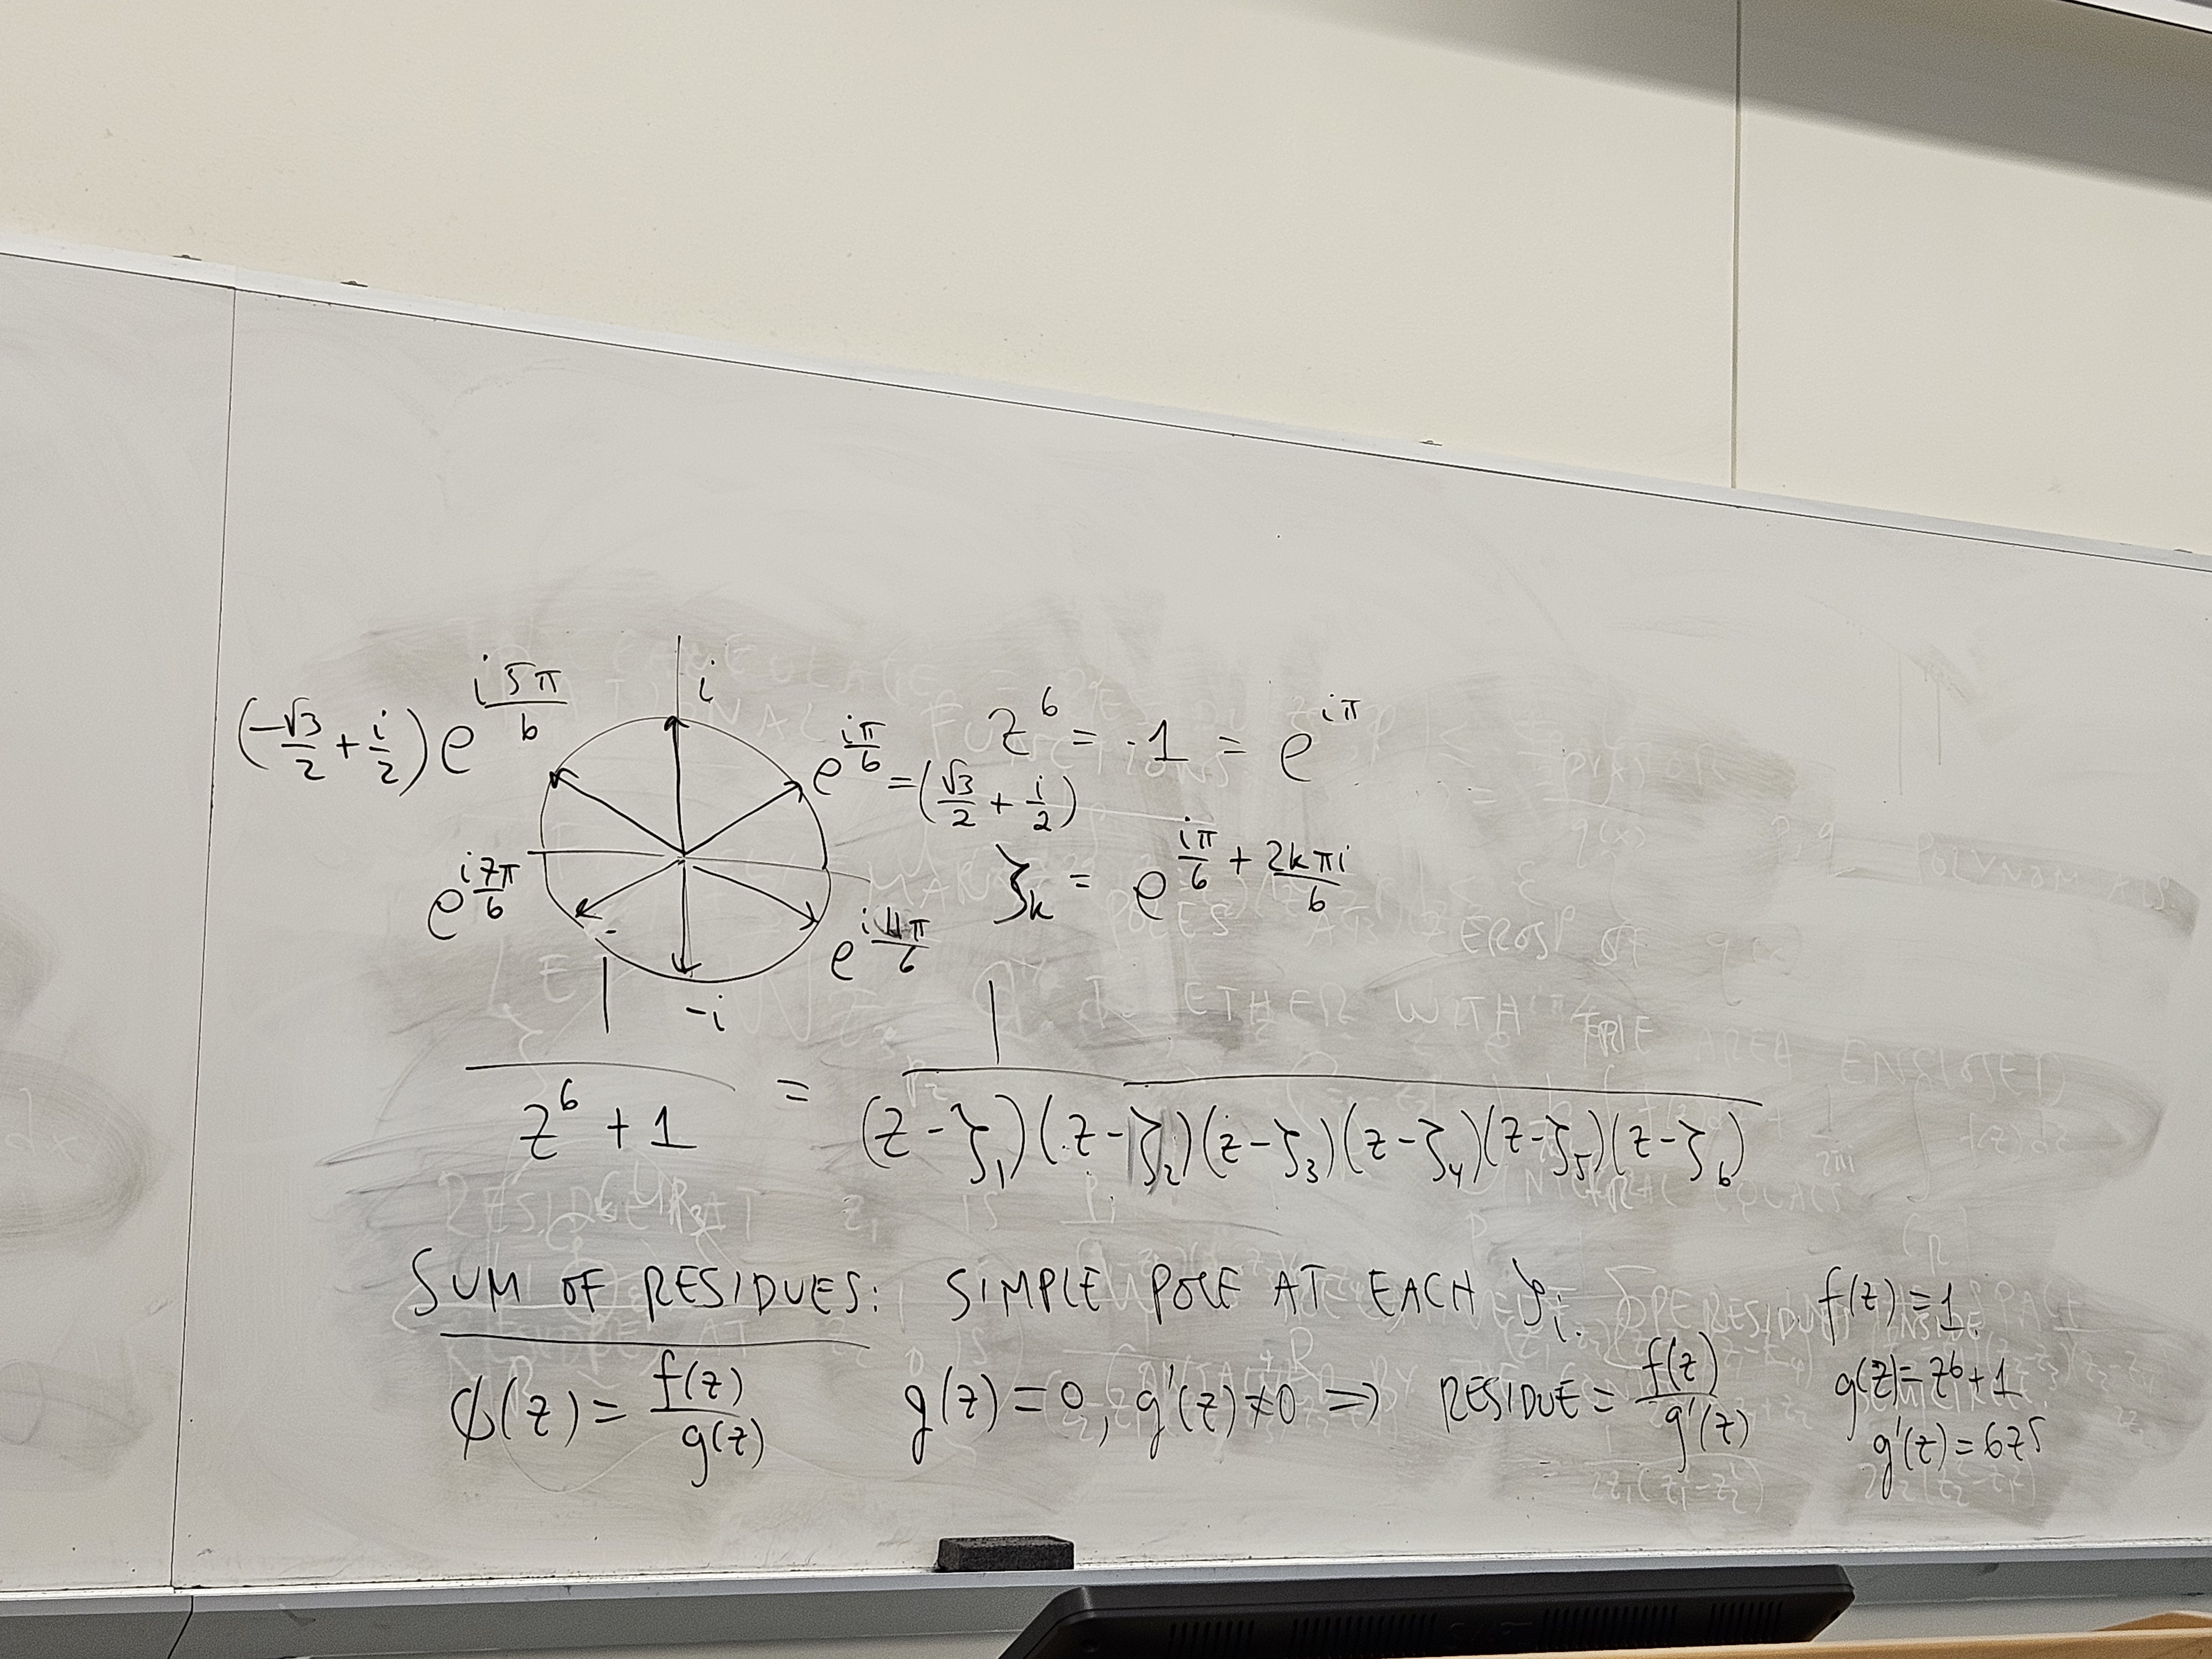 (-√3/2 + i/2) e^{i5π/6}
i
e^{iπ/6} = (√3/2 + i/2)
z^6 = -1 = e^{iπ}
e^{i7π/6}
-i
e^{i11π/6}
ζ_k = e^{iπ/6 + 2kπi/6}
1/(z^6 + 1) = 1/((z-ζ_1)(z-ζ_2)(z-ζ_3)(z-ζ_4)(z-ζ_5)(z-ζ_6))
SUM OF RESIDUES: SIMPLE POLE AT EACH ζ_i.
f(z) = 1.
ϕ(z) = f(z)/g(z) g(z) = 0, g'(z) ≠ 0 ⇒ RESIDUE = f(z)/g'(z)
g(z) = z^6 + 1
g'(z) = 6z^5